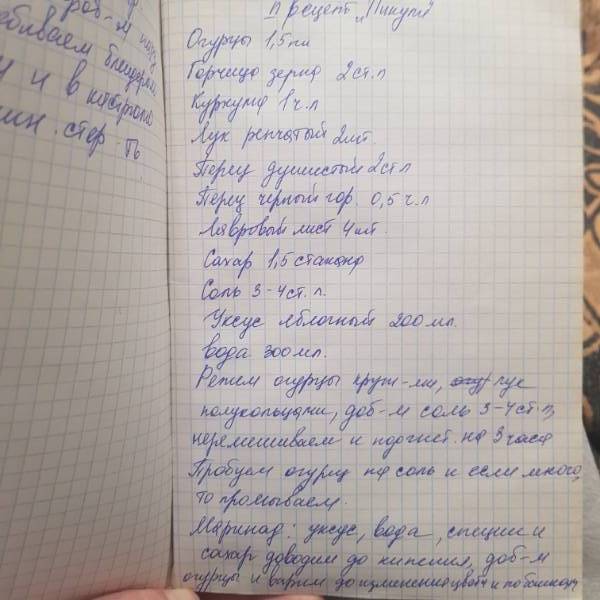 доб-м
ебиваем блендером
и и в
ин. стер.
II рецепт "Пикули"
Огурцы 1,5 кг
Горчица зерна 2 ст.л
Куркума 1 ч.л
Лук репчатый 2 шт.
Перец душистый 2 ст л
Перец черный гор. 0,5 ч.л
Лавровый лист 4 шт
Сахар 1,5 стакана
Соль 3-4 ст. л.
Уксус яблочный 200 мл.
вода 300 мл.
Режем огурцы круж-ми, лук
полукольцами, доб-м соль 3-4 ст.л,
перемешиваем и под гнет. на 3 часа
Пробуем огурец на соль и если много,
то промываем.
Маринад: уксус, вода, специи и
сахар доводим до кипения, доб-м
огурцы и варим до изменения цвета и по банкам